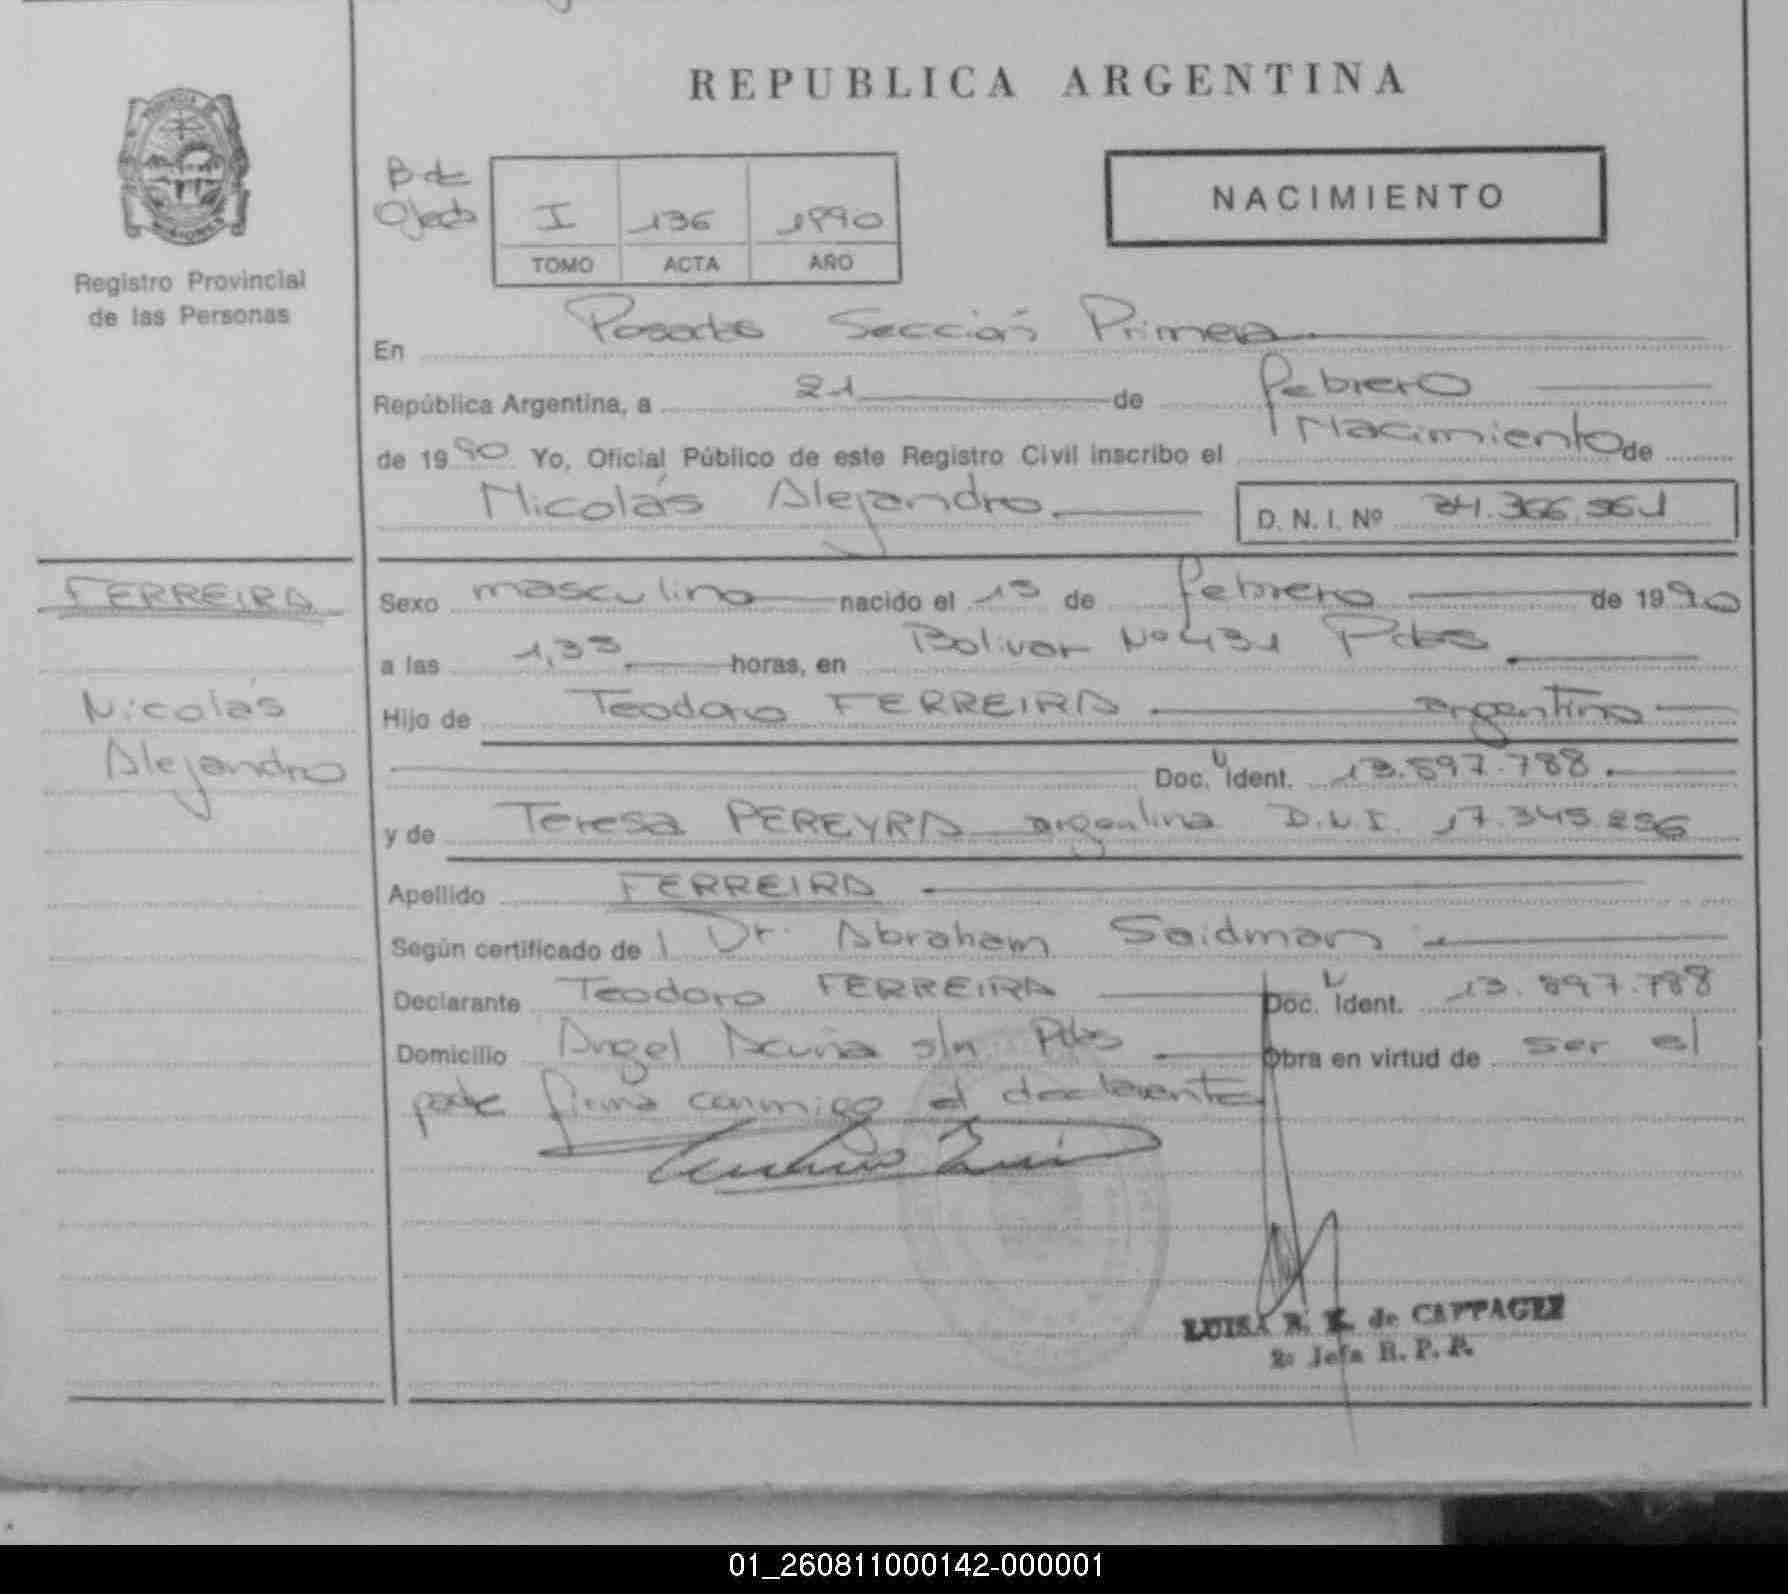 REPUBLICA ARGENTINA
B de
Ojeda
I 136 1990
TOMO ACTA AÑO
NACIMIENTO
Registro Provincial
de las Personas
En Posadas Sección Primera
República Argentina, a 21 de febrero
de 1990 Yo, Oficial Público de este Registro Civil inscribo el Nacimiento de
Nicolás Alejandro D. N. I. Nº
FERREIRA
Nicolás
Alejandro
Sexo masculino nacido el de febrero de 1990
a las horas, en Bolivar Nº 431 Pdas
Hijo de Teodoro FERREIRA argentino
Doc. Ident. 13.897.788
y de Teresa PEREYRA argentina D.N.I. 17.345.256
Apellido FERREIRA
Según certificado de Dr. Abraham Saidman
Declarante Teodoro FERREIRA Doc. Ident. 13.897.788
Domicilio Angel Acuña s/n Pdas Obra en virtud de ser el
padre firma conmigo el declarante
LUISA de
2º Jefa R. P. P.
01_260811000142-000001